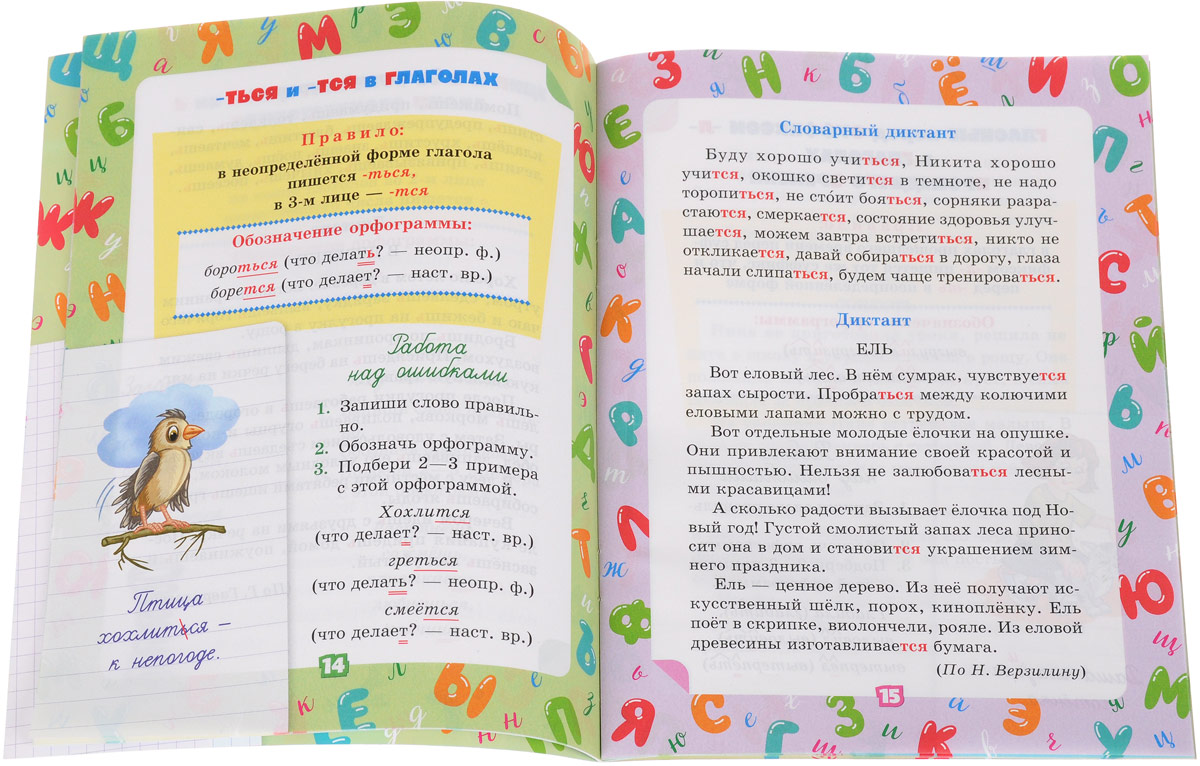 -ться и -тся в глаголах
Правило:
в неопределённой форме глагола
пишется -ться,
в 3-м лице — -тся
Обозначение орфограммы:
бороться (что делать? — неопр. ф.)
борется (что делает? — наст. вр.)
Работа
над ошибками
1. Запиши слово правиль-
но.
2. Обозначь орфограмму.
3. Подбери 2—3 примера
с этой орфограммой.
Хохлится
(что делает? — наст. вр.)
греться
(что делать? — неопр. ф.)
смеётся
(что делает? — наст. вр.)
Птица
хохлиться –
к непогоде.
14
Словарный диктант
Буду хорошо учиться, Никита хорошо
учится, окошко светится в темноте, не надо
торопиться, не сто́ит бояться, сорняки разра-
стаются, смеркается, состояние здоровья улуч-
шается, можем завтра встретиться, никто не
откликается, давай собираться в дорогу, глаза
начали слипаться, будем чаще тренироваться.
Диктант
ЕЛЬ
Вот еловый лес. В нём сумрак, чувствуется
запах сырости. Пробраться между колючими
еловыми лапами можно с трудом.
Вот отдельные молодые ёлочки на опушке.
Они привлекают внимание своей красотой и
пышностью. Нельзя не залюбоваться лесны-
ми красавицами!
А сколько радости вызывает ёлочка под Но-
вый год! Густой смолистый запах леса прино-
сит она в дом и становится украшением зим-
него праздника.
Ель — ценное дерево. Из неё получают ис-
кусственный шёлк, порох, киноплёнку. Ель
поёт в скрипке, виолончели, рояле. Из еловой
древесины изготавливается бумага.
(По Н. Верзилину)
15